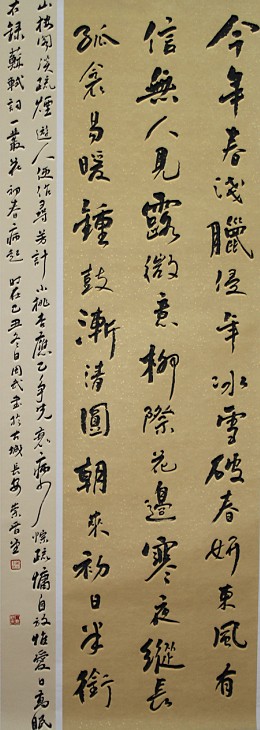 今年春浅臘侵年冰雪破春妍東風有
信無人見露微意柳際花邊寒夜縱長
孤衾易暖鍾鼓漸清圓朝來初日半銜
山樓閣淡疏煙遊人便作尋芳計小桃杏應已爭先衰病少悰疏慵自放惟愛日高眠
右錄蘇軾詞一叢花初春病起 時在己丑冬日周武書於古城長安